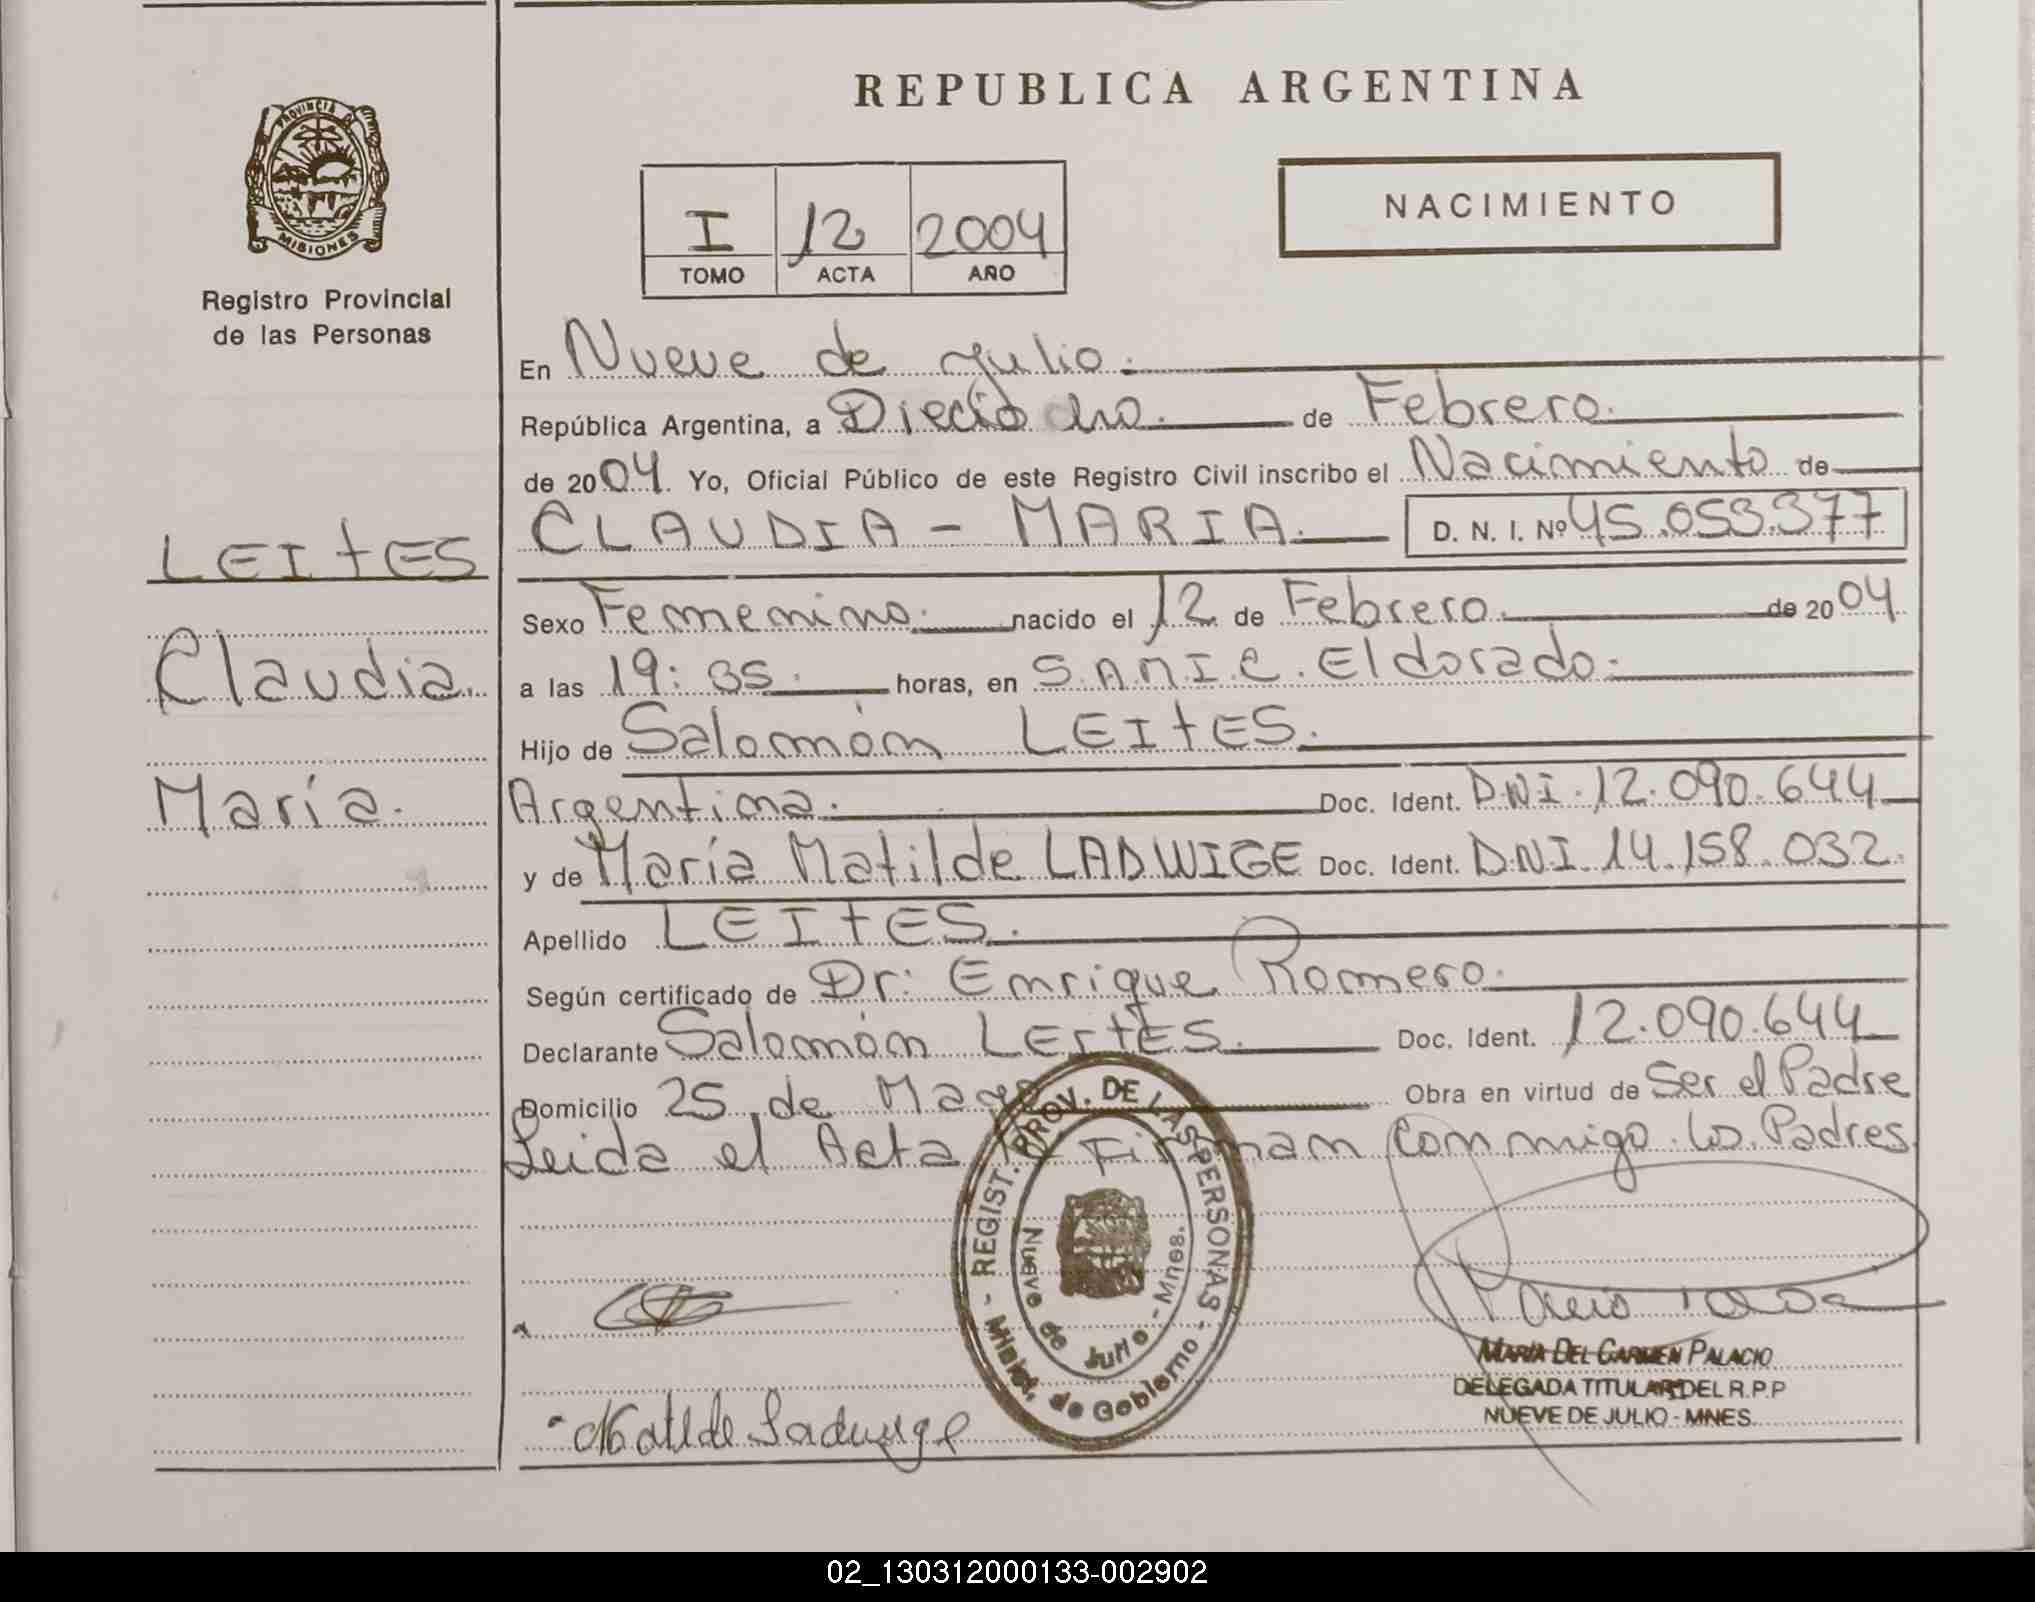 REPUBLICA ARGENTINA
PROVINCIA DE
MISIONES
Registro Provincial
de las Personas
I 12 2004
TOMO ACTA AÑO
NACIMIENTO
LEITES
Claudia.
María.
En Nueve de Julio.
República Argentina, a Dieciocho. de Febrero.
de 2004. Yo, Oficial Público de este Registro Civil inscribo el Nacimiento de
CLAUDIA - MARIA. D. N. I. Nº 45.053.377
Sexo Femenino. nacido el 12 de Febrero. de 2004
a las 19:35. horas, en S.A.M.I.C. Eldorado.
Hijo de Salomón LEITES.
Argentina. Doc. Ident. DNI. 12.090.644
y de María Matilde LADWIGE Doc. Ident. DNI 14.158.032.
Apellido LEITES.
Según certificado de Dr. Enrique Romero.
Declarante Salomón LEITES. Doc. Ident. 12.090.644
Domicilio 25 de Mayo Obra en virtud de Ser el Padre
Leida el Acta Firman Conmigo los Padres
REGIST. PROV. DE LAS PERSONAS - Minist. de Gobierno -
Nueve de Julio - Mnes.
Matilde Ladwige
MARIA DEL CARMEN PALACIO
DELEGADA TITULAR DEL R.P.P
NUEVE DE JULIO - MNES.
02_130312000133-002902